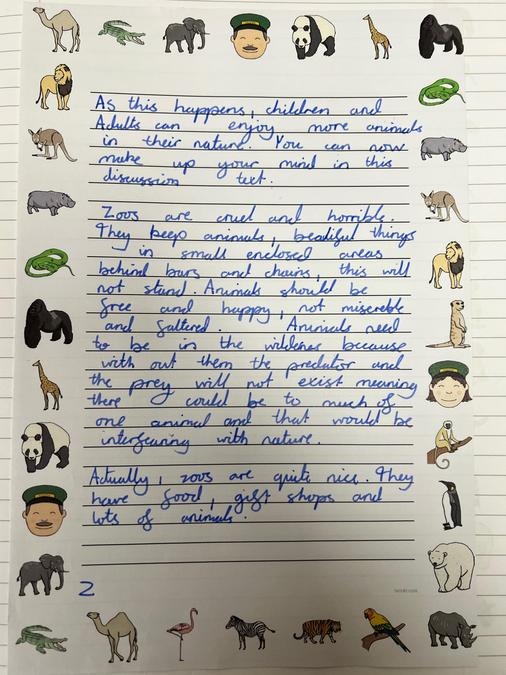 As this happens, children and
Adults can enjoy more animals
in their nature. You can now
make up your mind in this
discussion text.
Zoos are cruel and horrible.
They keep animals, beatiful things
in small enclosed areas
behind bars and chains, this will
not stand. Animals should be
free and happy, not miserble
and faltered. Animals need
to be in the wildenes because
with out them the predator and
the prey will not exist meaning
there could be to much of
one animal and that would be
interfearing with nature.
Actually, zoos are quite nice. They
have food, gift shops and
lots of animals.
2